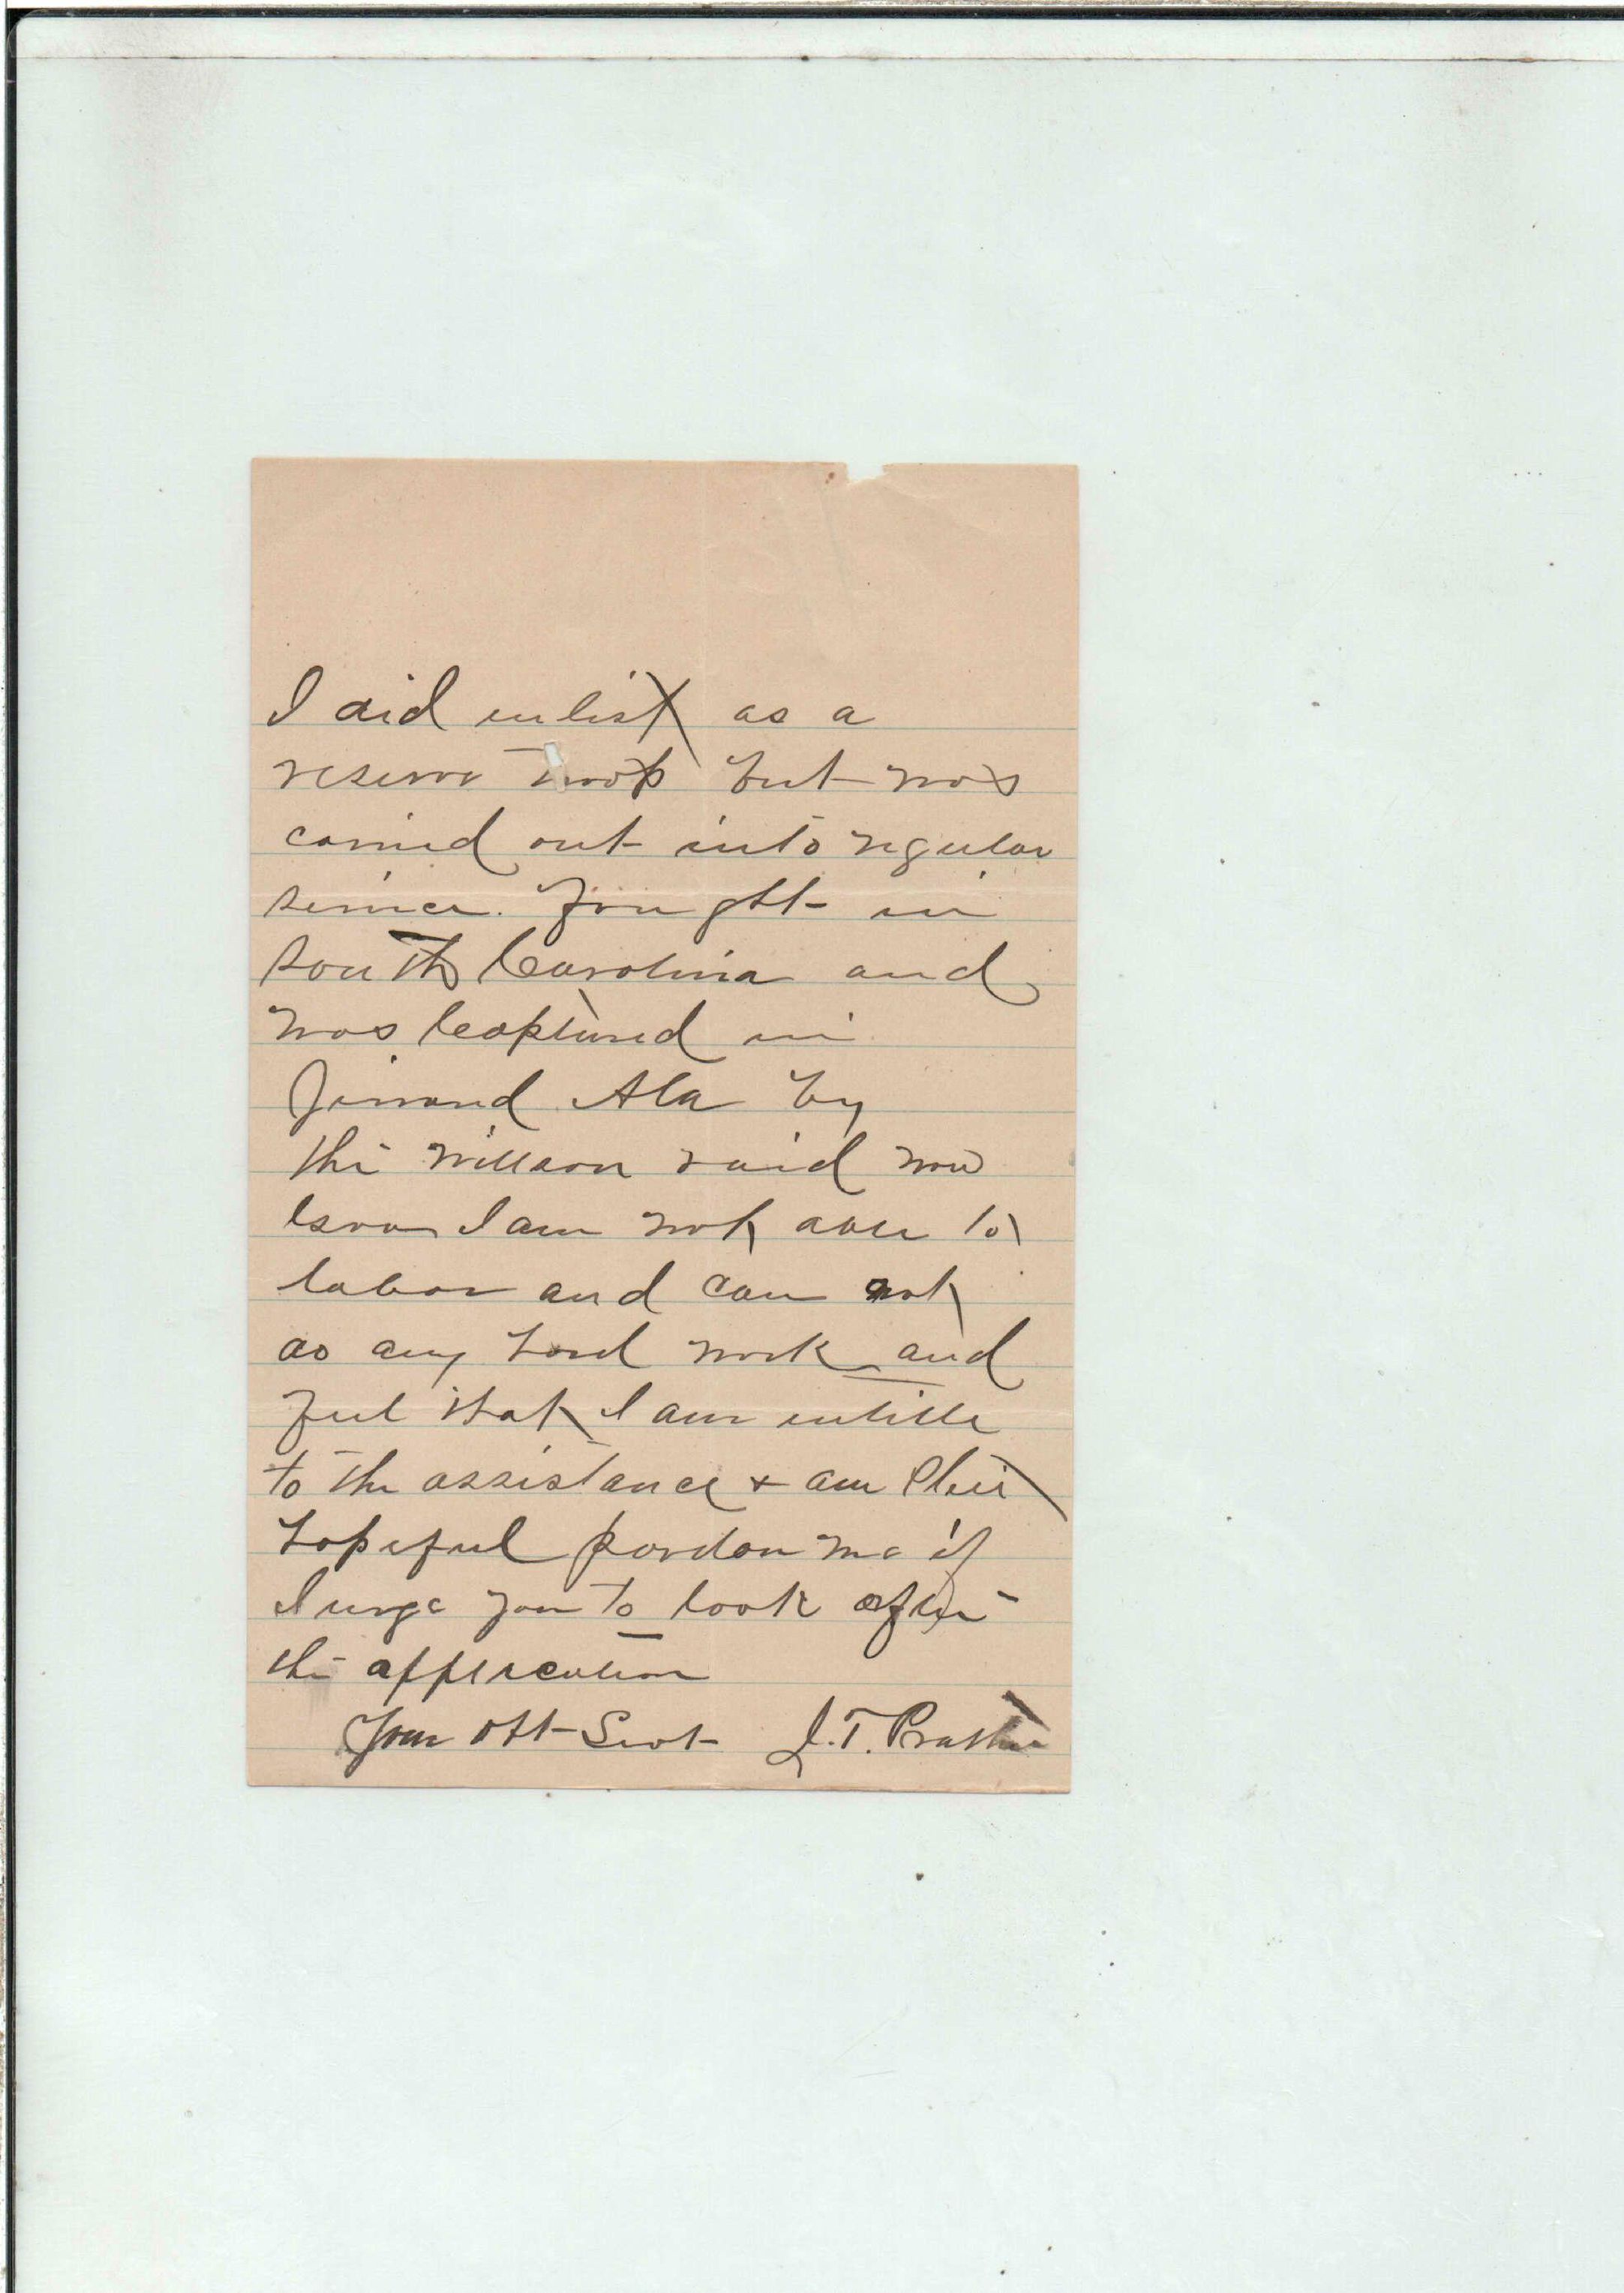 I did enlist as a
reserve troop but was
carried out into regular
service. Fought in
South Carolina and
was Captured in
Girrard Ala by
the Willson raid now
I am not able to
labor and can not
do any hard work and
feel that I am intitle
to the assistance & am
hopeful pardon me if
I urge you to look after
the application
Your Obt Servt J.T. Prather